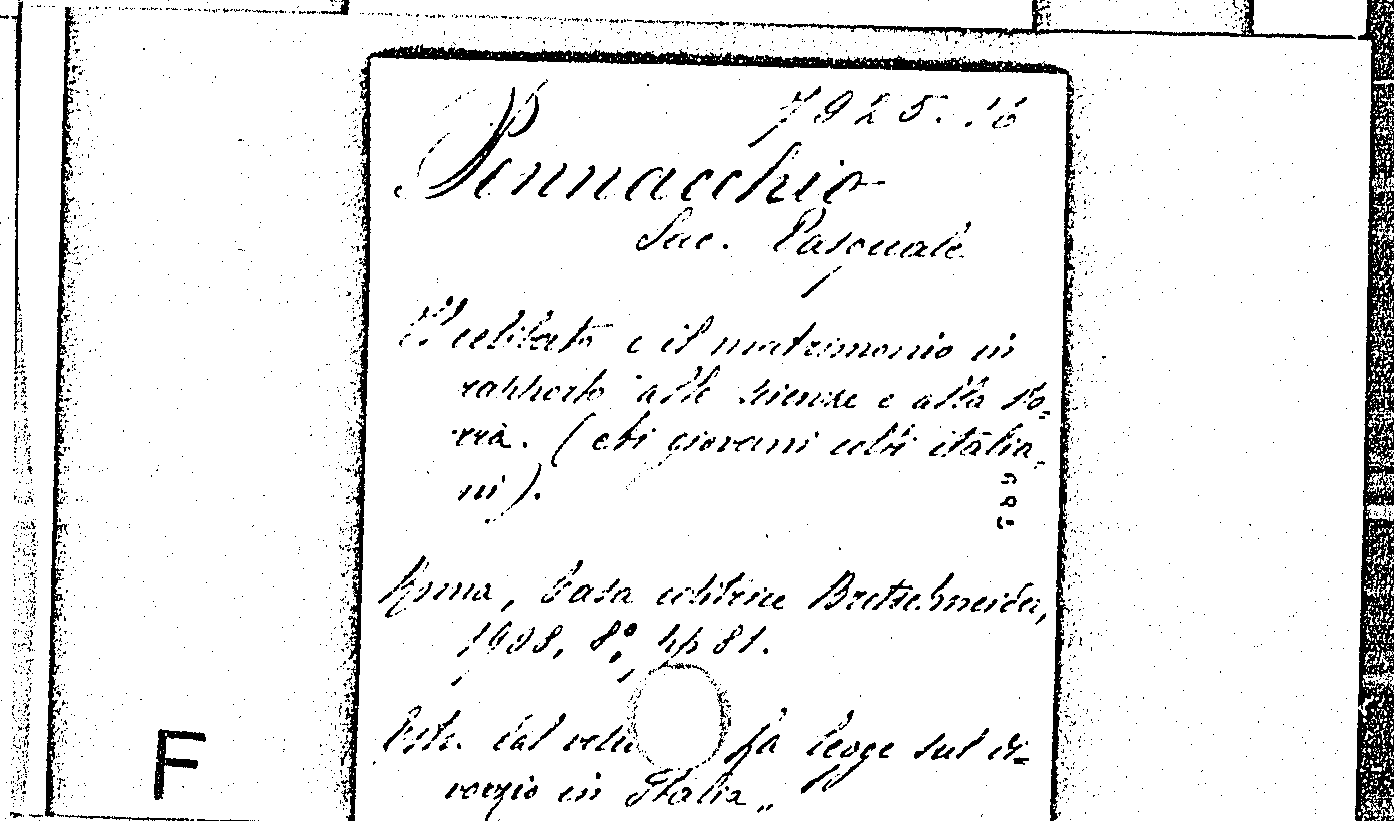 7925.16
Pennacchio
Sac. Pasquale
Il celibato e il matrimonio in
rapporto alle scienze e alla sto=
ria. (Ai giovani colti italia=
ni).
Roma, Casa editrice Bretschneider,
1908, 8°, pp 81.
Estr. dal volu La legge sul di=
vorzio in Italia"
F